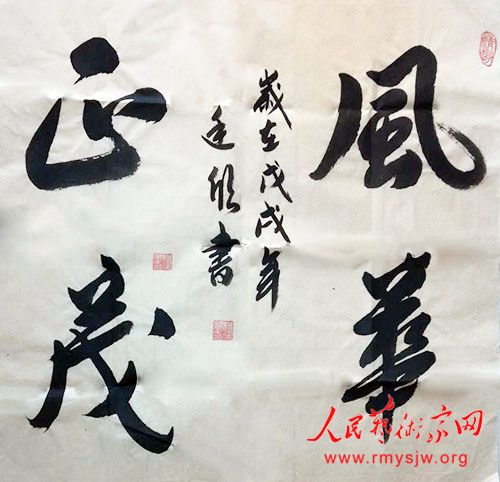 風華
正茂
歲在戊戌年
廷欣書
人民艺术家网
www.rmysjw.org